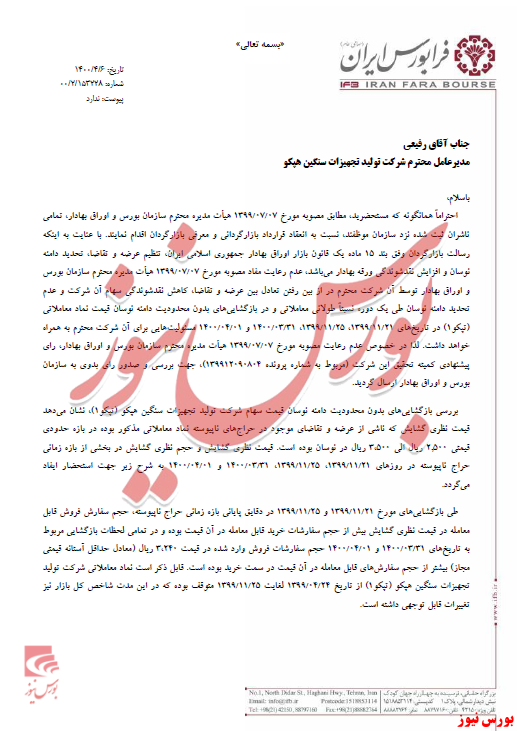 «بسمه تعالی»
(سهامی عام)
فرابورس ایران
IFB IRAN FARA BOURSE
تاریخ: ۱۴۰۰/۴/۶
شماره: ۰۰/۲/۱۵۳۲۲۸
پیوست: ندارد
جناب آقای رفیعی
مدیرعامل محترم شرکت تولید تجهیزات سنگین هپکو
باسلام،
احتراماً همانگونه که مستحضرید، مطابق مصوبه مورخ ۱۳۹۹/۰۷/۰۷ هیأت مدیره محترم سازمان بورس و اوراق بهادار، تمامی
ناشران ثبت شده نزد سازمان موظفند، نسبت به انعقاد قرارداد بازارگردانی و معرفی بازارگردان اقدام نمایند. با عنایت به اینکه
رسالت بازارگردان وفق بند ۱۵ ماده یک قانون بازار اوراق بهادار جمهوری اسلامی ایران، تنظیم عرضه و تقاضا، تحدید دامنه
نوسان و افزایش نقدشوندگی ورقه بهادار می‌باشد، عدم رعایت مفاد مصوبه مورخ ۱۳۹۹/۰۷/۰۷ هیأت مدیره محترم سازمان بورس
و اوراق بهادار توسط آن شرکت محترم در از بین رفتن تعادل بین عرضه و تقاضا، کاهش نقدشوندگی سهام آن شرکت و عدم
تحدید دامنه نوسان طی یک دوره نسبتاً طولانی معاملاتی و در بازگشایی‌های بدون محدودیت دامنه نوسان قیمت نماد معاملاتی
(تپکو۱) در تاریخ‌های ۱۳۹۹/۱۱/۲۱، ۱۳۹۹/۱۱/۲۵، ۱۴۰۰/۰۳/۳۱ و ۱۴۰۰/۰۴/۰۱ مسئولیت‌هایی برای آن شرکت محترم به همراه
خواهد داشت. لذا در خصوص عدم رعایت مصوبه مورخ ۱۳۹۹/۰۷/۰۷ هیأت مدیره محترم سازمان بورس و اوراق بهادار، رای
پیشنهادی کمیته تحقیق این شرکت (مربوط به شماره پرونده ۱۳۹۹۱۲۰۹۰۸۰۴)، جهت بررسی و صدور رای بدوی به سازمان
بورس و اوراق بهادار ارسال گردید.
بررسی بازگشایی‌های بدون محدودیت دامنه نوسان قیمت سهام شرکت تولید تجهیزات سنگین هپکو (تپکو۱)، نشان می‌دهد
قیمت نظری گشایش که ناشی از عرضه و تقاضای موجود در حراج‌های ناپیوسته نماد معاملاتی مذکور بوده در بازه حدودی
قیمتی ۲,۵۰۰ ریال الی ۳,۵۰۰ ریال در نوسان بوده است. قیمت نظری گشایش و حجم نظری گشایش در بخشی از بازه زمانی
حراج ناپیوسته در روزهای ۱۳۹۹/۱۱/۲۱، ۱۳۹۹/۱۱/۲۵، ۱۴۰۰/۰۳/۳۱ و ۱۴۰۰/۰۴/۰۱ به شرح زیر جهت استحضار ایفاد
می‌گردد.
طی بازگشایی‌های مورخ ۱۳۹۹/۱۱/۲۱ و ۱۳۹۹/۱۱/۲۵ در دقایق پایانی بازه زمانی حراج ناپیوسته، حجم سفارش فروش قابل
معامله در قیمت نظری گشایش بیش از حجم سفارشات خرید قابل معامله در آن قیمت بوده و در تمامی لحظات بازگشایی مربوط
به تاریخ‌های ۱۴۰۰/۰۳/۳۱ و ۱۴۰۰/۰۴/۰۱ حجم سفارشات فروش وارد شده در قیمت ۳,۲۴۰ ریال (معادل حداقل آستانه قیمتی
مجاز) بیشتر از حجم سفارش‌های قابل معامله در آن قیمت در سمت خرید بوده است. قابل ذکر است نماد معاملاتی شرکت تولید
تجهیزات سنگین هپکو (تپکو۱) از تاریخ ۱۳۹۹/۰۴/۲۴ لغایت ۱۳۹۹/۱۱/۲۵ متوقف بوده که در این مدت شاخص کل بازار نیز
تغییرات قابل توجهی داشته است.
www.ifb.ir
بورس نیوز
No.1, North Didar St., Haghani Hwy., Tehran, Iran
Email: info@ifb.ir Postcode:1518853114
Tel:+98(21) 42150, 88797160 Fax:+98(21)88882764
بزرگراه حقانی، نرسیده به چهارراه جهان کودک
نبش دیدار شمالی، پلاک ۱ کدپستی: ۱۵۱۸۸۵۳۱۱۴
بورس نیوز